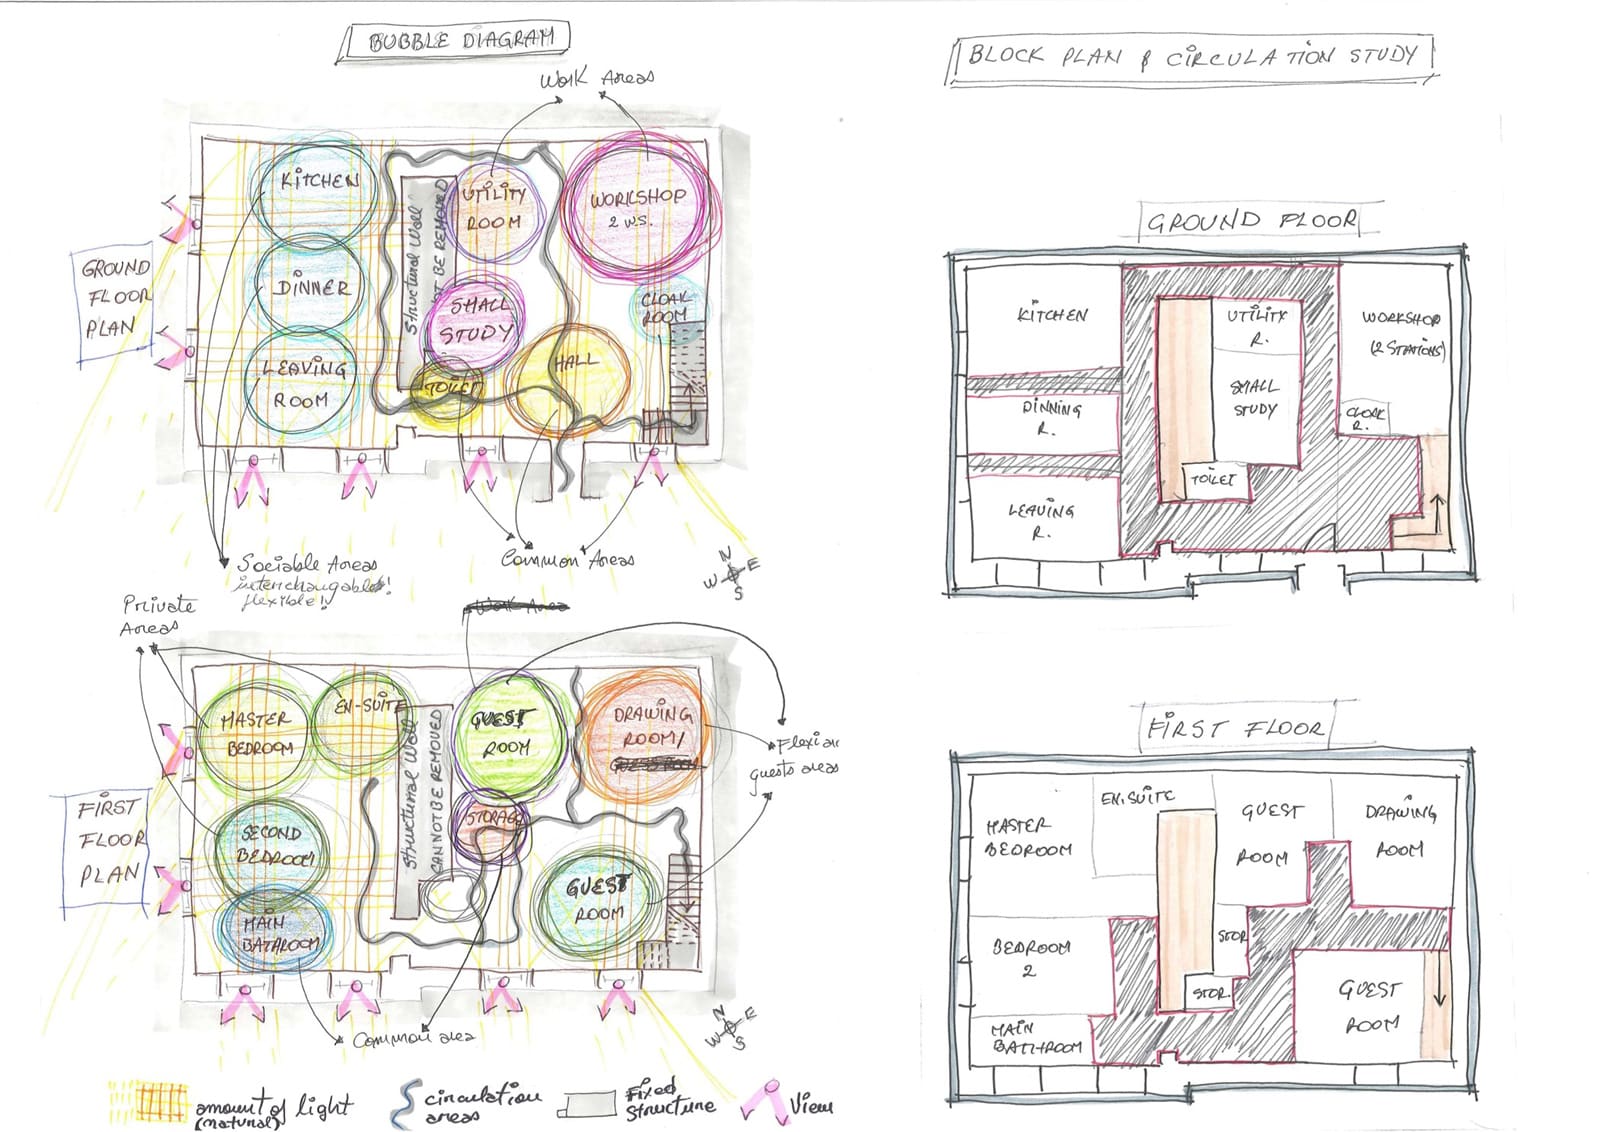 BUBBLE DIAGRAM
Work Areas
GROUND
FLOOR
PLAN
KiTCHEN
DiNNER
LEAViNG
ROOM
Structural Wall
NOT BE REMOVED
UTiLiTY
ROOM
SMALL
STUDY
TOiLET
WORKSHOP
2 W.S.
CLOAK
ROOM
HALL
Sociable Areas
interchangable!
flexible!
Common Areas
N
W E
S
Private
Areas
Work Area
FiRST
FLOOR
PLAN
MASTER
BEDROOM
EN-SUiTE
SECOND
BEDROOM
MAiN
BATROOM
Structural Wall
CANNOT BE REMOVED
GUEST
ROOM
STORAGE
DRAWiNG
ROOM/
GUEST ROOM
GUEST
ROOM
guests areas
Common area
N
W E
S
amount of light
(natural)
circulation
areas
Fixed
Structure
View
BLOCK PLAN & CiRCULATiON STUDY
GROUND FLOOR
KiTCHEN
DiNNiNG
R.
LEAViNG
R.
UTiLiTY
R.
SMALL
STUDY
TOiLET
WORKSHOP
(2 STATiONS)
CLOAK
R.
FiRST FLOOR
MASTER
BEDROOM
EN.SUiTE
GUEST
ROOM
DRAWiNG
ROOM
BEDROOM
2
STOR
STOR.
MAiN
BATHROOM
GUEST
ROOM